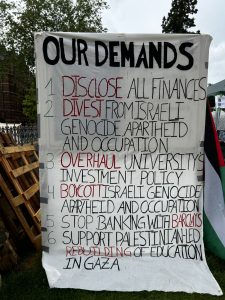 OUR DEMANDS
1 DISCLOSE ALL FINANCES
2 DIVEST FROM ISRAELI
GENOCIDE APARTHEID
AND OCCUPATION
3 OVERHAUL UNIVERSITY
INVESTMENT POLICY
4 BOYCOTT ISRAELI GENOCIDE
APARTHEID AND OCCUPATION
5 STOP BANKING WITH BARCLAYS
6 SUPPORT PALESTINIAN LED
REBUILDING OF EDUCATION
IN GAZA